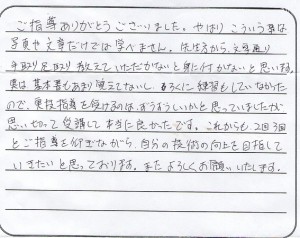 ご指導ありがとうございました。やはりこういう事は
写真や文章だけでは学べません。先生方から、文字通り
手取り足取り教えていただかないと身に付かないと思います。
実は基本書もあまり覚えてないし、ろくに練習もしていなかった
ので、実技指導を受けるのはずうずうしいかと思っていましたが
思い切って受講して本当に良かったです。これからも2回3回
とご指導を仰ぎながら、自分の技術の向上を目指して
いきたいと思っております。またよろしくお願いいたします。